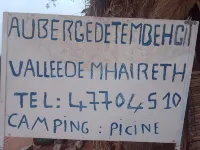 AUBERGEDETEMBEHGIT
VALLEEDE MHAIRETH
TEL: 47704510
CAMPING : PICINE